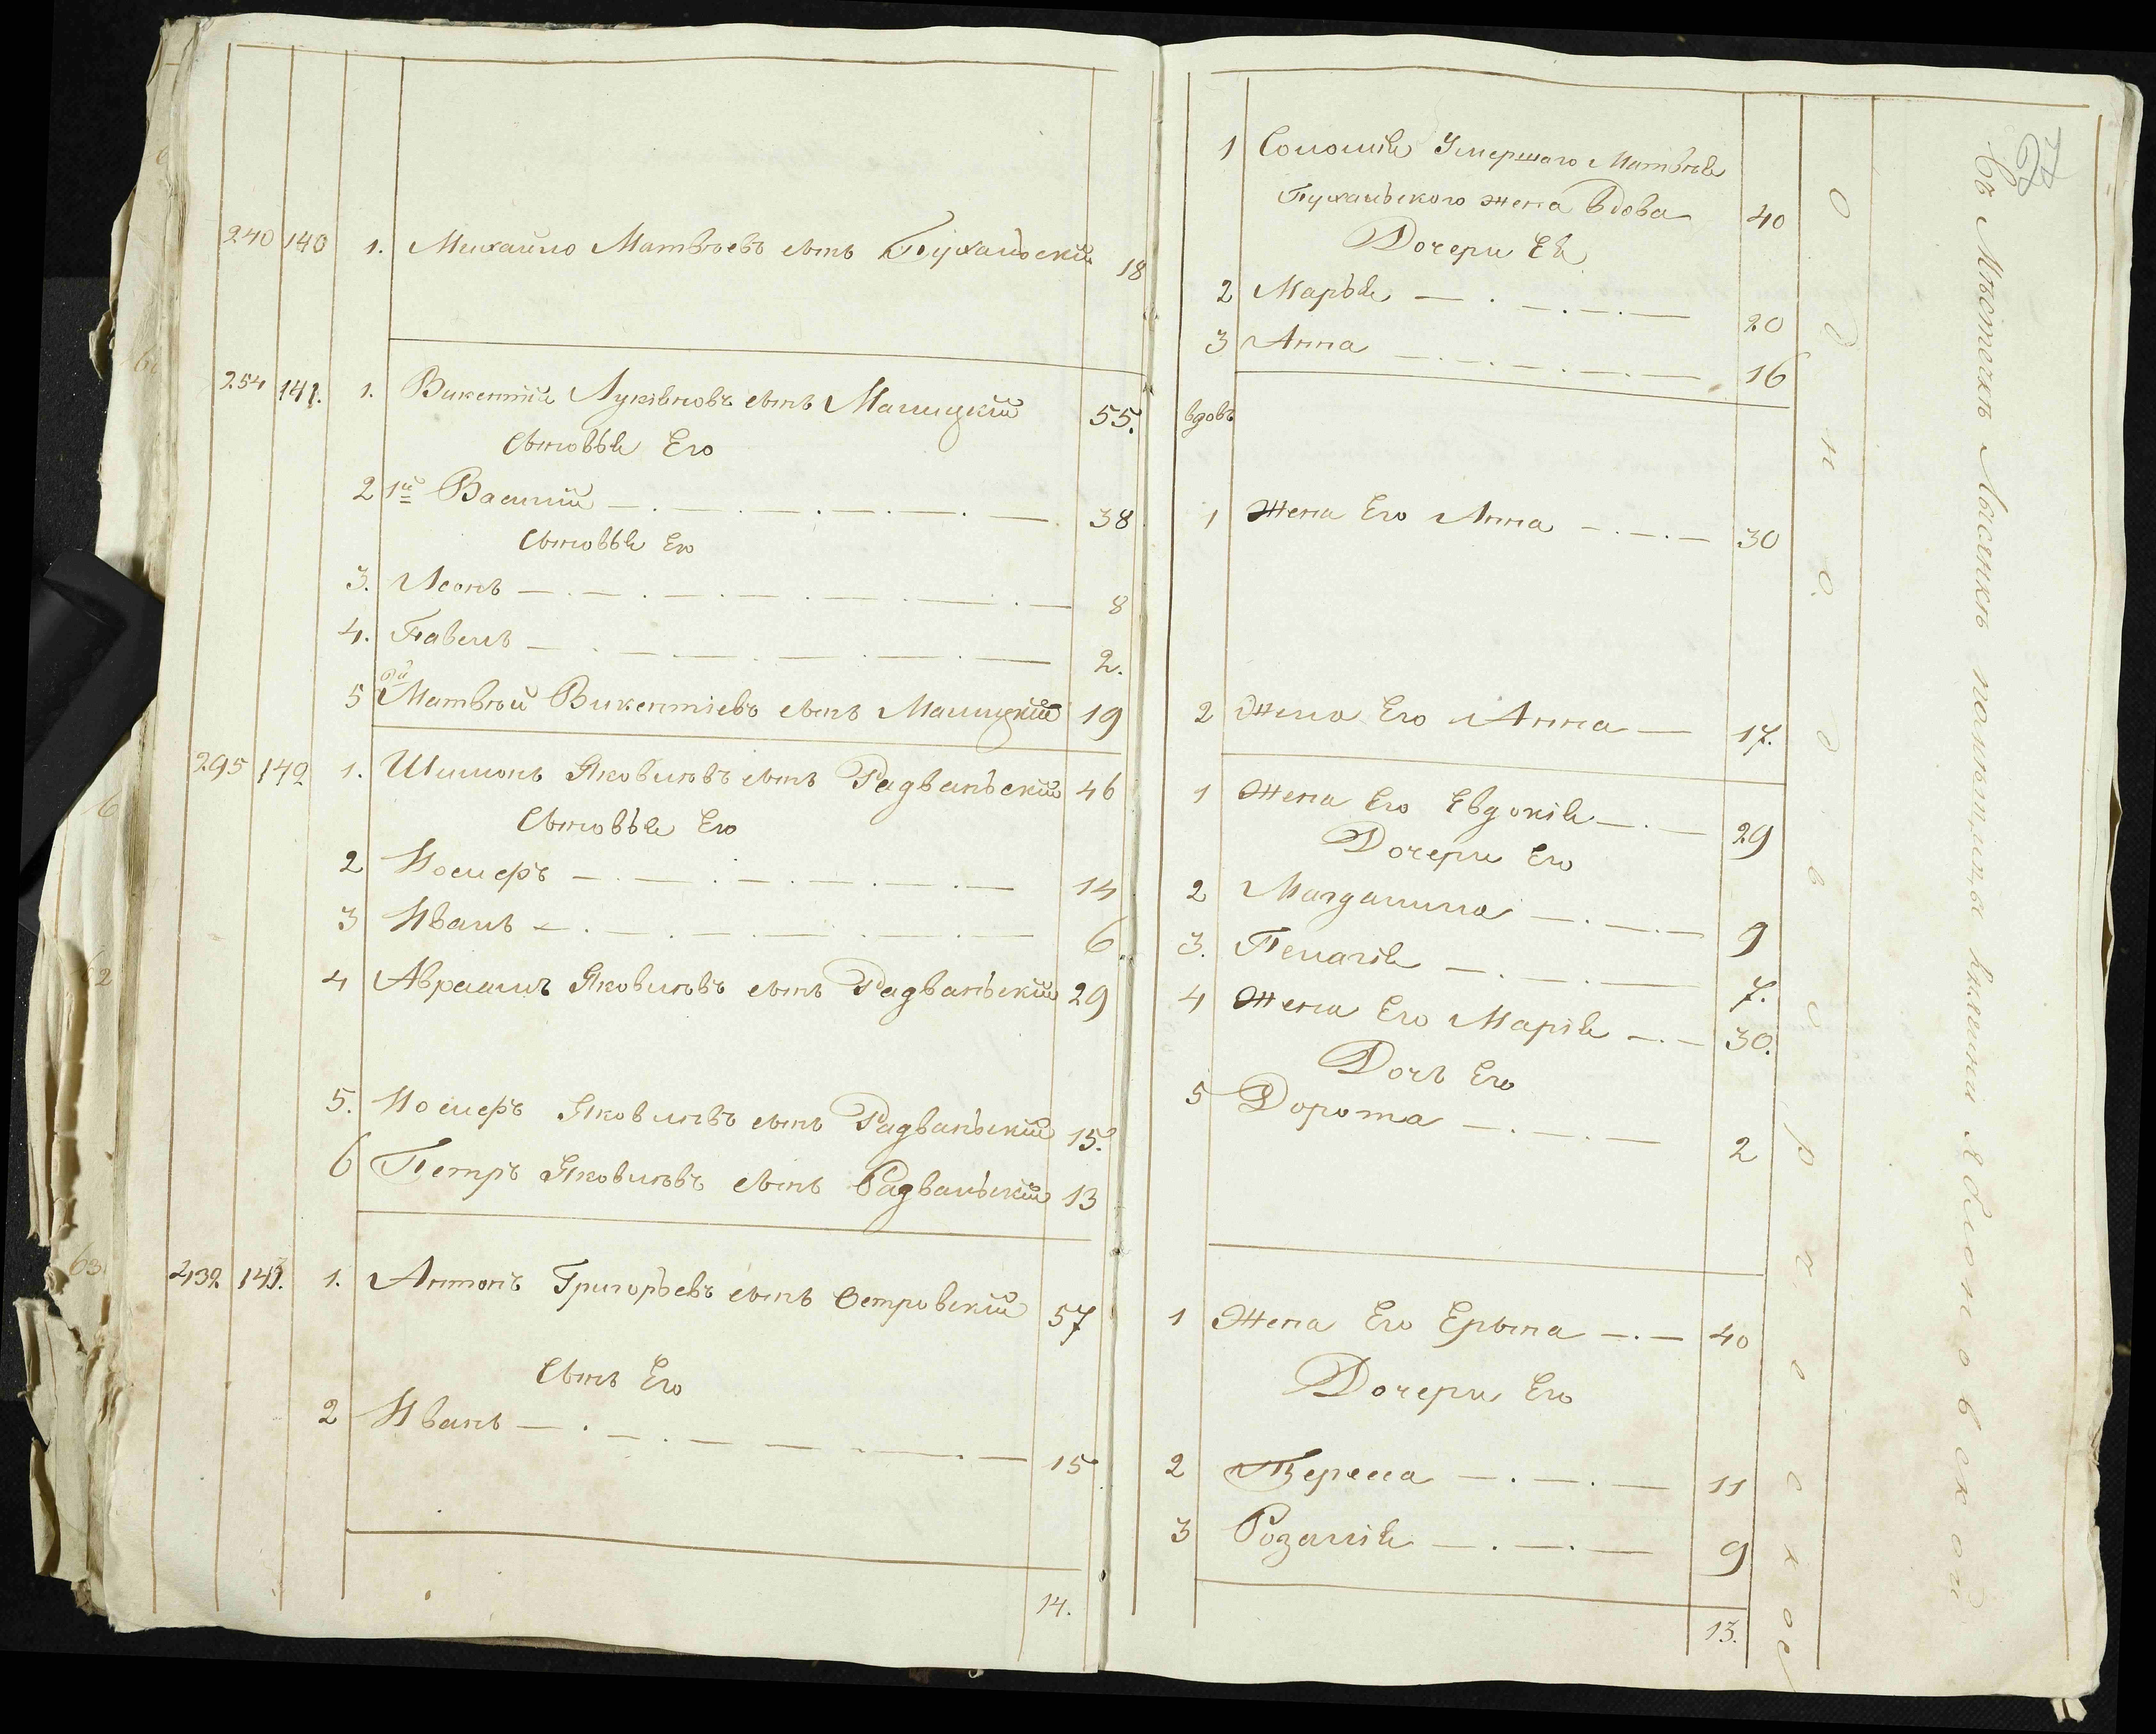 240 140 1. Михайло Матвѣевъ сынъ Пухальскій 18
254 141. 1. Викентій Лукіяновъ сынъ Малицкій 55.
Сыновья Его
2 1й Василій 38
Сыновья Его
3. Леонъ 8
4. Павелъ 2.
5 Матвѣй Викентіевъ сынъ Малицкій 19
295 142 1. Шимонъ Яковлевъ сынъ Радваньскій 46
Сыновья Его
2 Иосифъ 14
3 Иванъ 6.
4 Авраамъ Яковлевъ сынъ Радваньскій 29
5. Иосифъ Яковлевъ сынъ Радваньскій 15.
6 Петръ Яковлевъ сынъ Радваньскій 13
432 143. 1. Антонъ Григорьевъ сынъ Островскій 57
Сынъ Его
2 Иванъ 15
14.
1 Соломія Умершаго Матвѣя
Пухальского жена вдова 40
Дочери Ея
2 Марья 20
3 Анна 16
вдовъ
1 Жена Его Анна 30
2 Жена Его Анна 17.
1 Жена Его Евдокія 29
Дочери Его
2 Магдалина 9
3. Пелагія 7.
4 Жена Его Марія 30.
Дочь Его
5 Дорота 2
1 Жена Его Ерына 40
Дочери Его
2 Тереса 11
3 Розалія 9
13.
Однодворческое
Въ Мѣстечкѣ Лысянкѣ Яблоновской